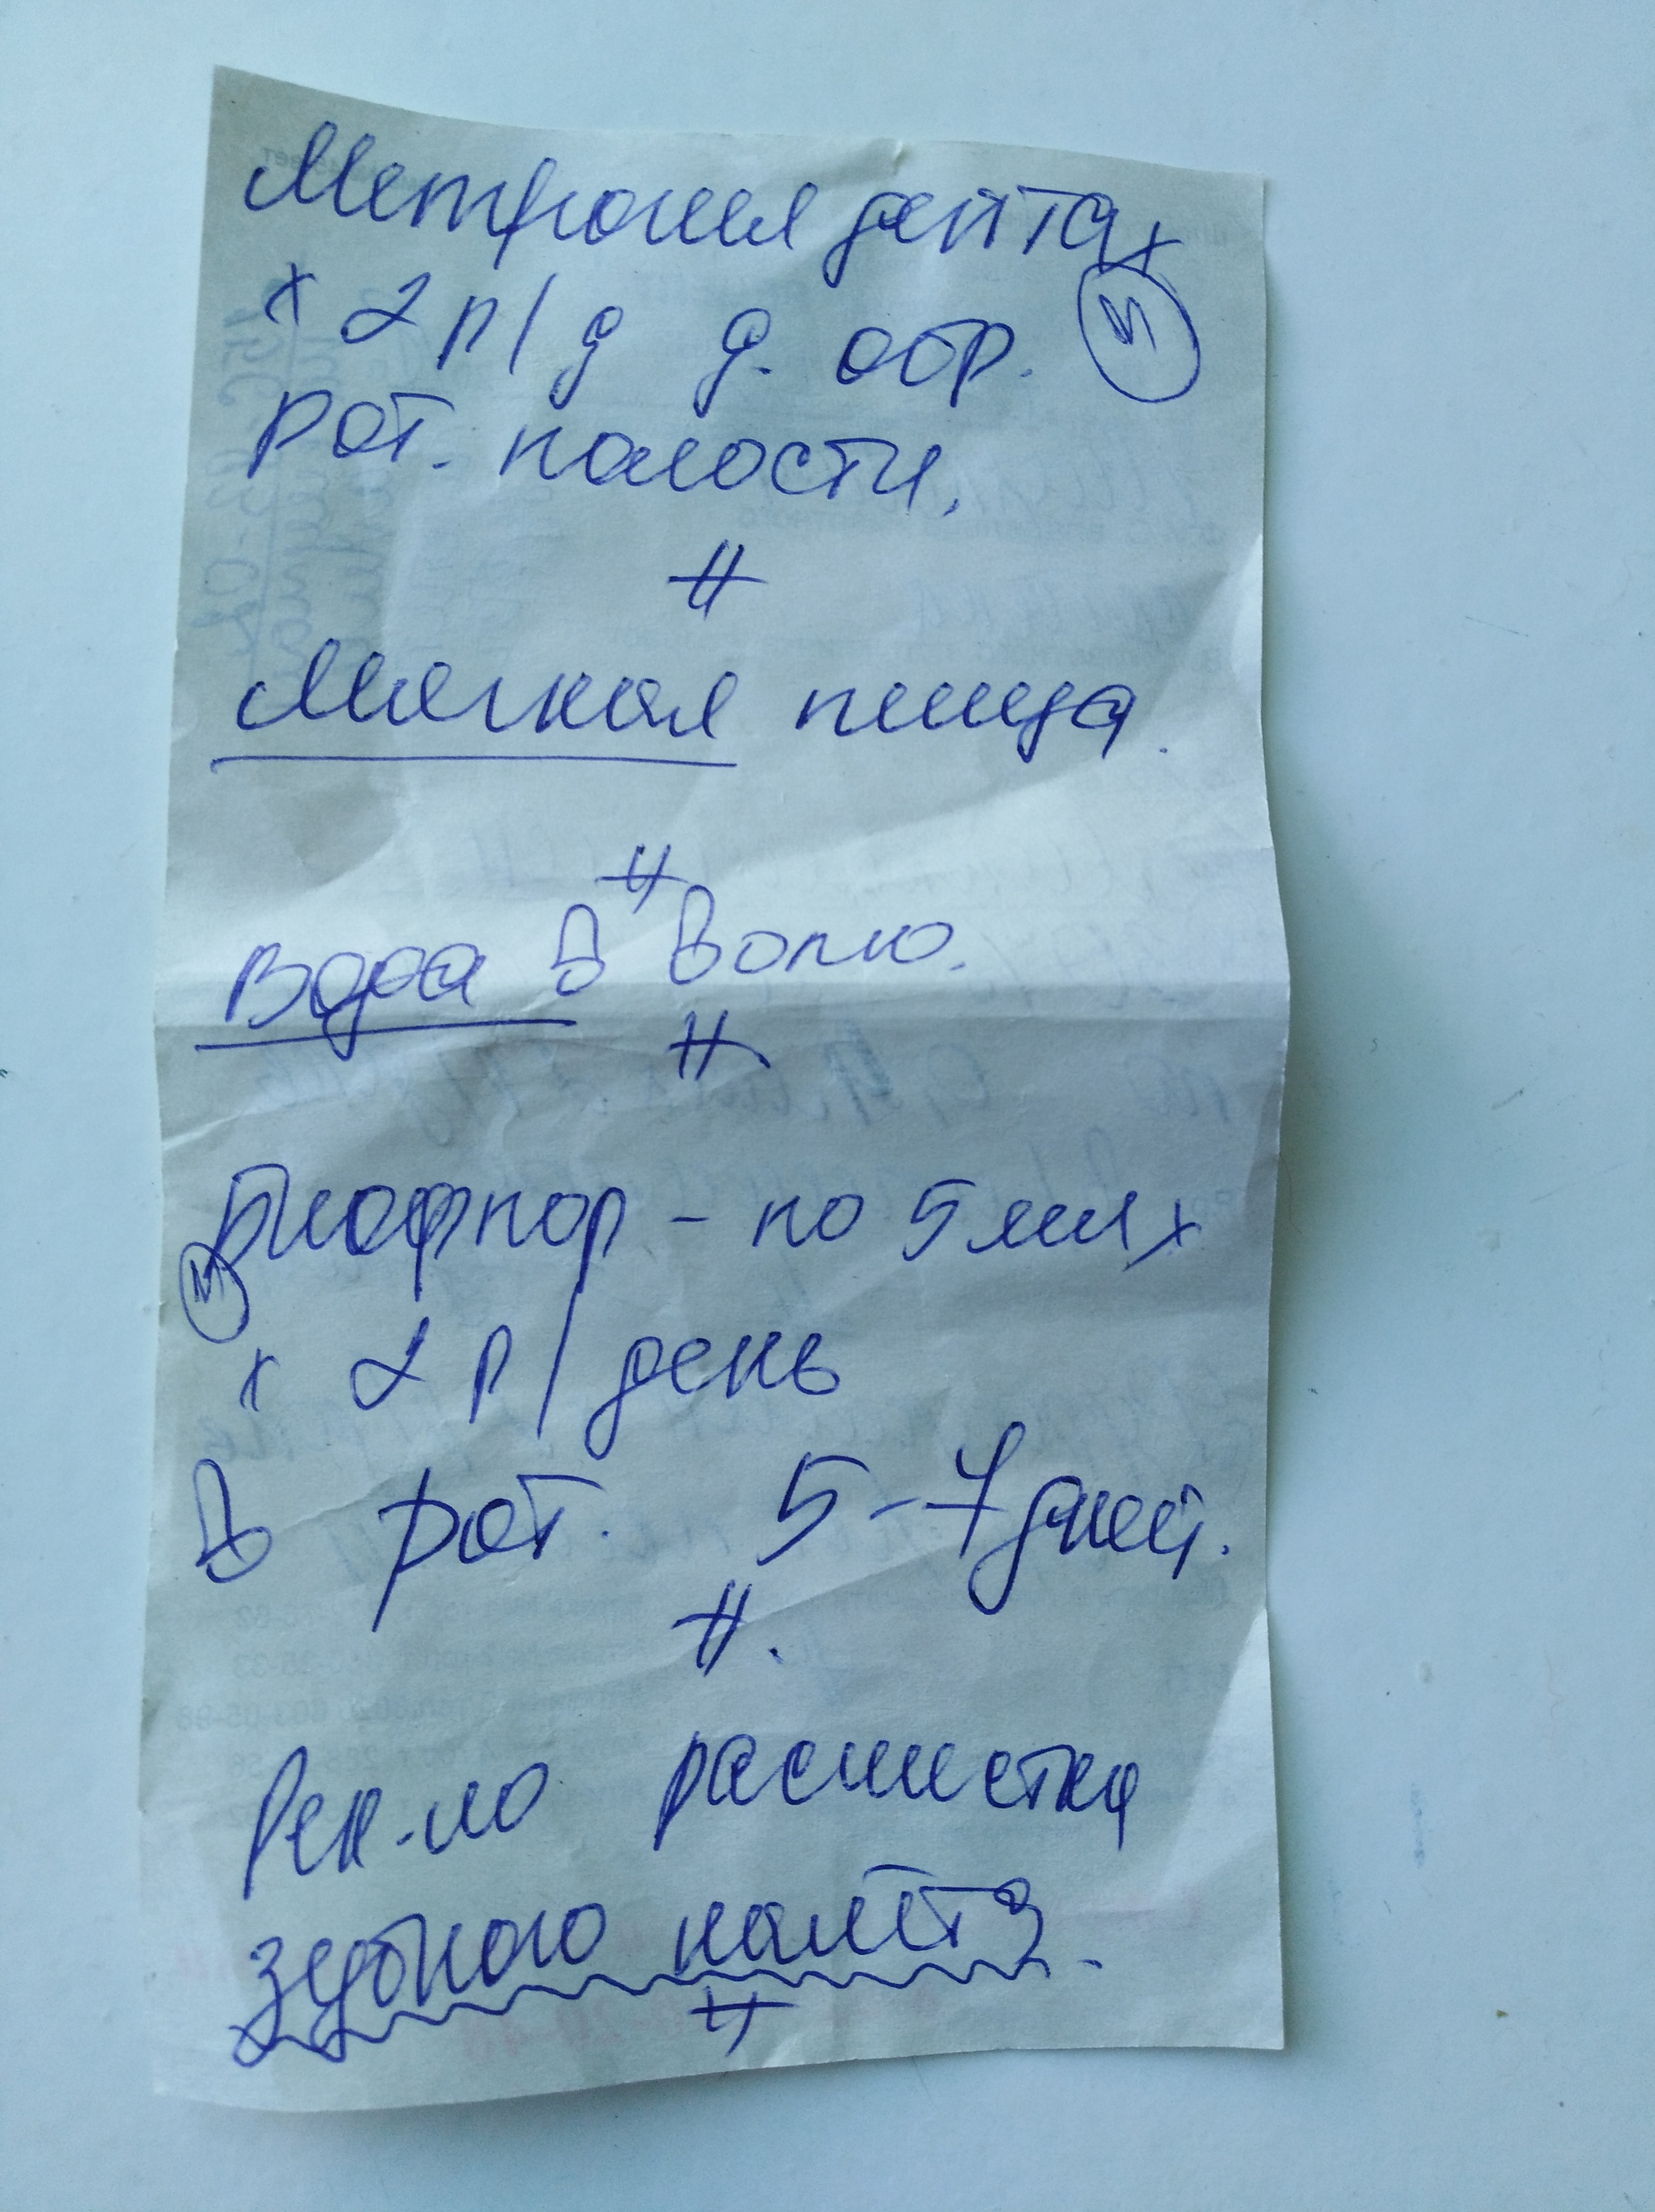 Метрогил дента х
х 2 р/д д. обр.
рот. полости.
#
Мягкая пища.
#
Вода в волю.
#
Биофлор - по 5 мл х
х 2 р/день
В рот. 5-7 дней.
#.
Рек-но расчистка
зубного налёта.
#